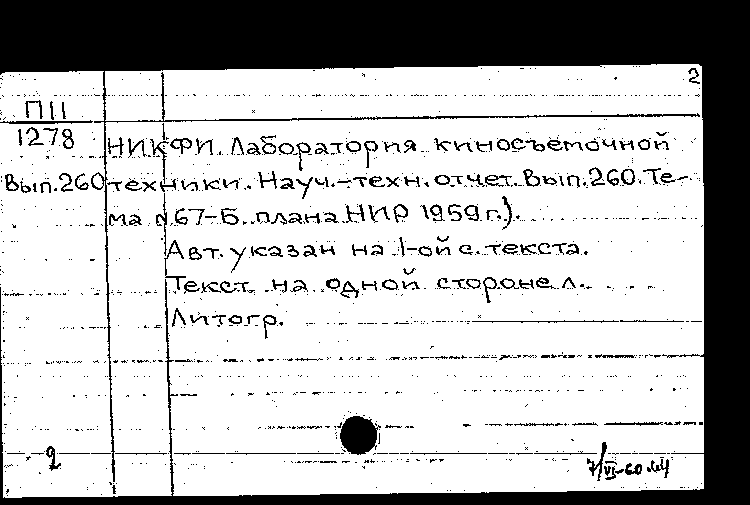 2
П11
1278 НИКФИ. Лаборатория киносъемочной
Вып.260 техники. Науч.-техн. отчет. Вып.260. Те-
ма №67-Б плана НИР 1959г.).
Авт. указан на 1-ой с. текста.
Текст на одной стороне л.
Литогр.
2
7/VI-60